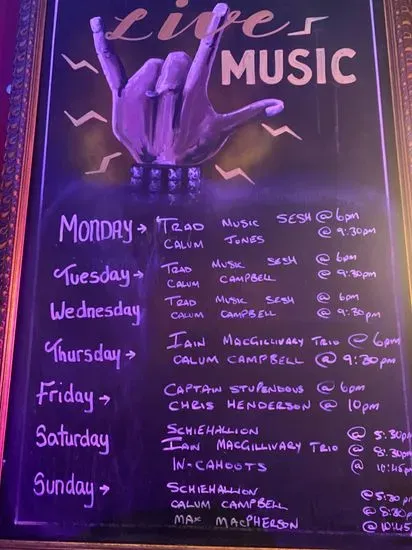 Live
MUSIC
MONDAY → TRAD MUSIC SESH @ 6pm
CALUM JONES @ 9:30pm
Tuesday → TRAD MUSIC SESH @ 6pm
CALUM CAMPBELL @ 9:30pm
Wednesday TRAD MUSIC SESH @ 6pm
CALUM CAMPBELL @ 9:30pm
Thursday → IAIN MACGILLIVARY TRIO @ 6pm
CALUM CAMPBELL @ 9:30pm
Friday → CAPTAIN STUPENDOUS @ 6pm
CHRIS HENDERSON @ 10pm
Saturday SCHIEHALLION @ 5:30pm
IAIN MACGILLIVARY TRIO @ 8:30pm
IN-CAHOOTS @ 10:45pm
Sunday → SCHIEHALLION @ 5:30pm
CALUM CAMPBELL @ 8:30pm
MAX MACPHERSON @ 10:45